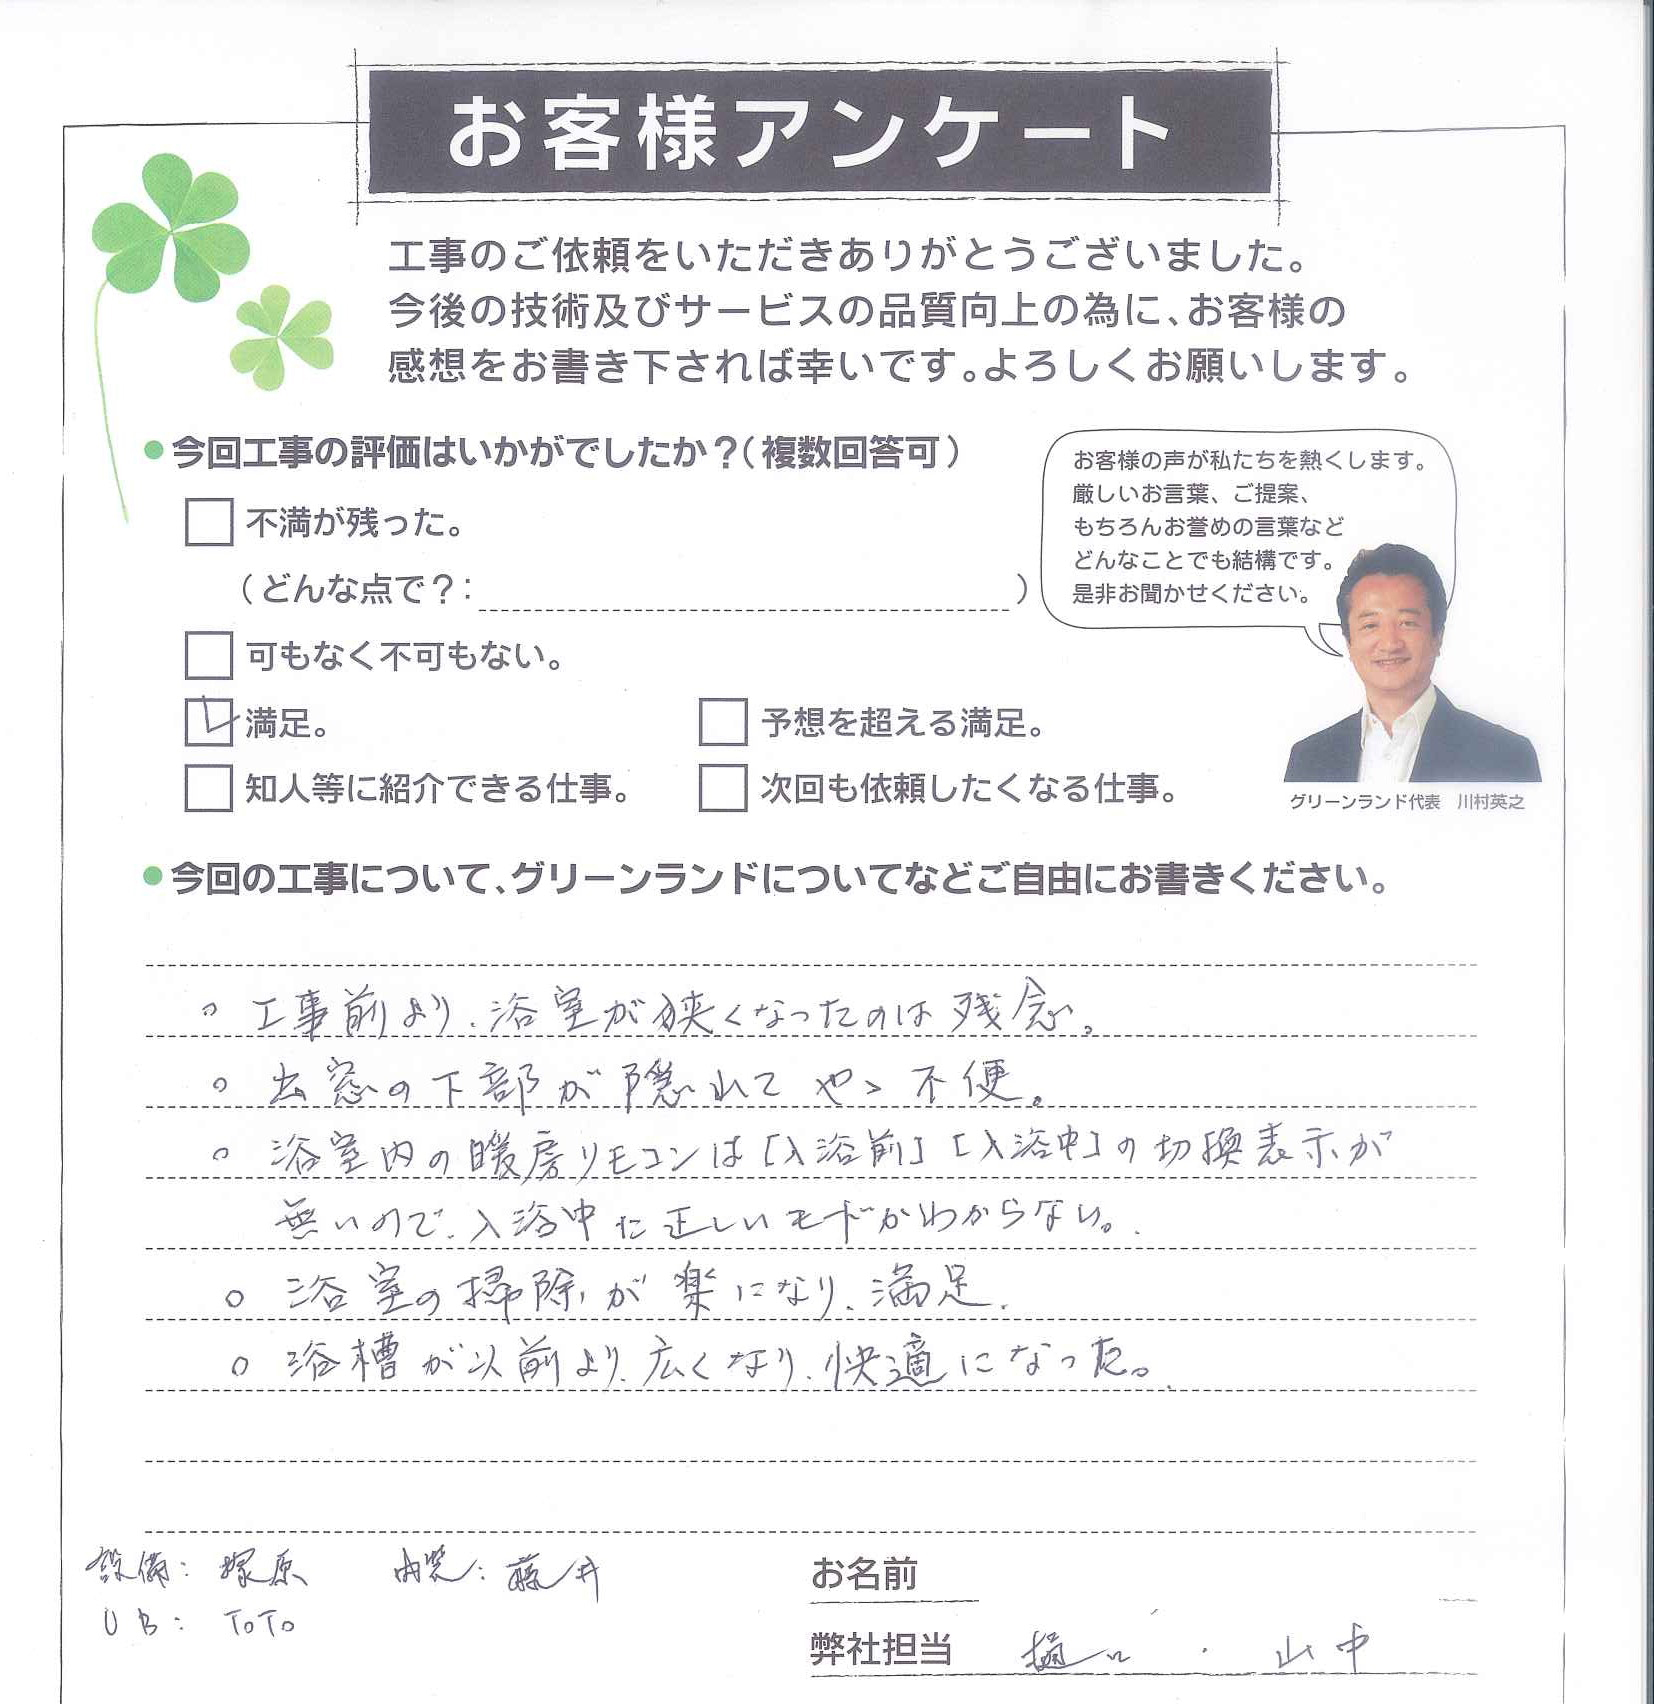 お客様アンケート
工事のご依頼をいただきありがとうございました。
今後の技術及びサービスの品質向上の為に、お客様の
感想をお書き下されば幸いです。よろしくお願いします。
●今回工事の評価はいかがでしたか?(複数回答可)
不満が残った。
(どんな点で?: )
可もなく不可もない。
満足。
予想を超える満足。
知人等に紹介できる仕事。
次回も依頼したくなる仕事。
お客様の声が私たちを熱くします。
厳しいお言葉、ご提案、
もちろんお誉めの言葉など
どんなことでも結構です。
是非お聞かせください。
グリーンランド代表 川村英之
●今回の工事について、グリーンランドについてなどご自由にお書きください。
○ 工事前より、浴室が狭くなったのは残念。
○ 出窓の下部が隠れてやゝ不便。
○ 浴室内の暖房リモコンは「入浴前」「入浴中」の切換表示が
無いので、入浴中に正しいモードかわからない。
○ 浴室の掃除が楽になり、満足。
○ 浴槽が以前より、広くなり、快適になった。
設備: 塚原 内装: 藤井
UB: TOTO
お名前
弊社担当 樋口 ・ 山中